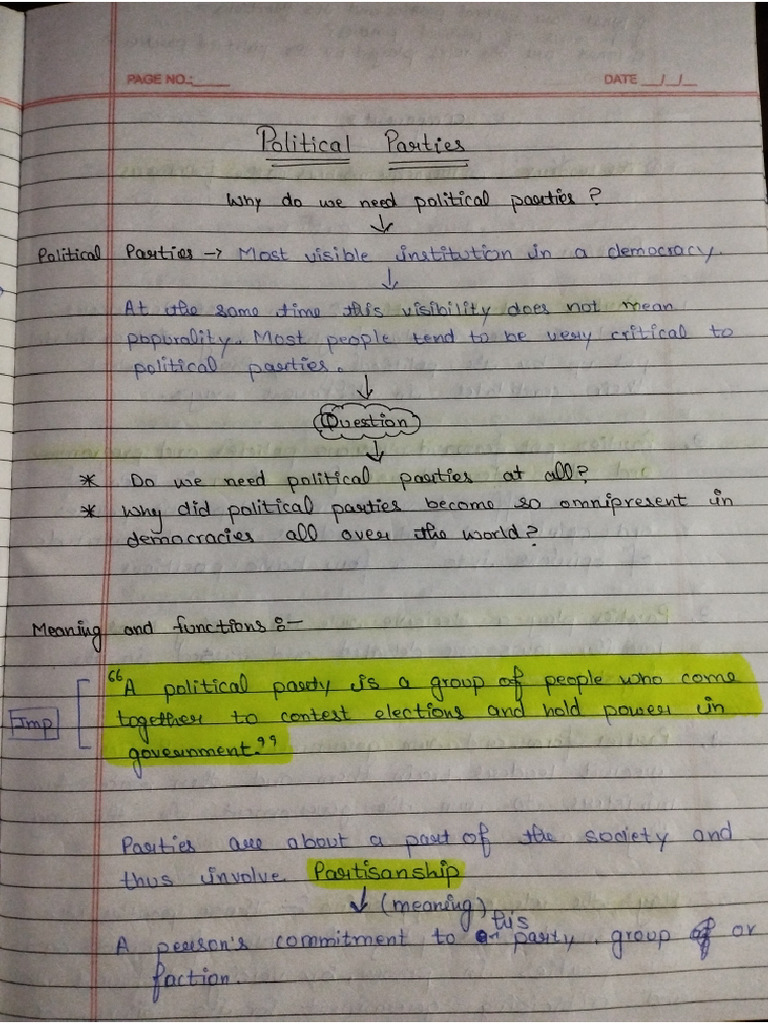 PAGE NO.:
DATE / /
Political Parties
Why do we need political parties ?
↓
Political Parties → Most visible institution in a democracy.
↓
At the same time this visibility does not mean
popurality. Most people tend to be very critical to
political parties.
↓
Question
↓
* Do we need political parties at all?
* Why did political parties become so omnipresent in
democracies all over the world?
Meaning and functions :-
"A political party is a group of people who come
Imp together to contest elections and hold power in
government."
Parties are about a part of the society and
thus involve Partisanship
↓ (meaning)
his
A person's commitment to party, group or
faction.